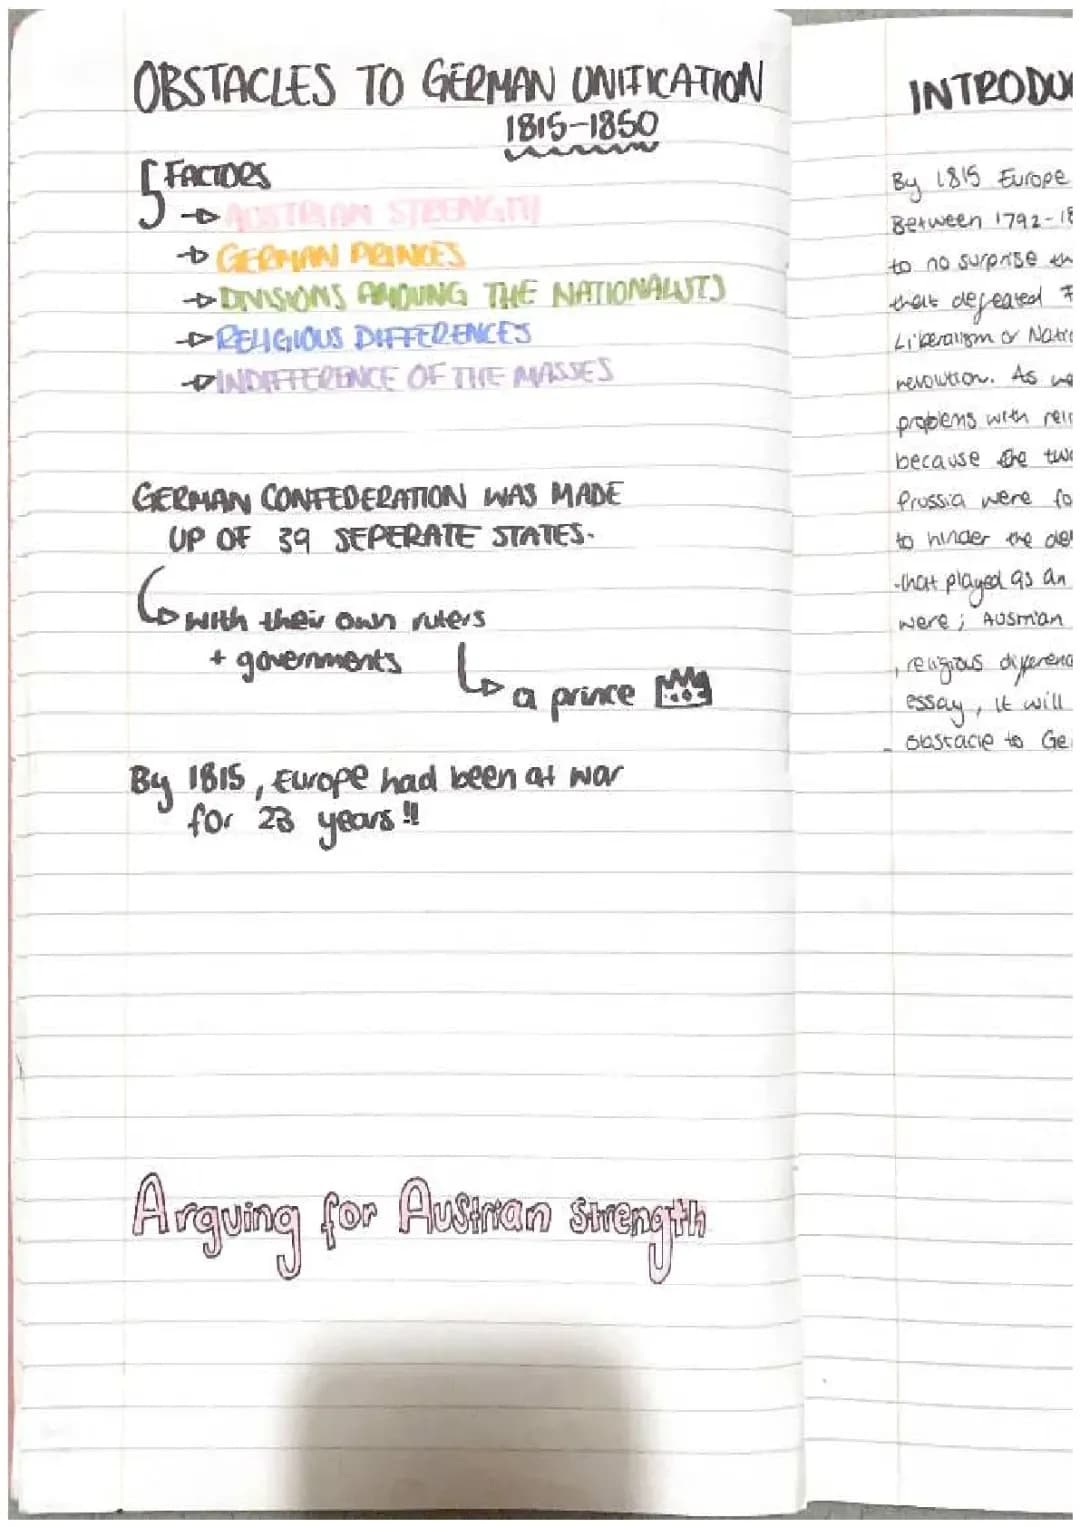 OBSTACLES TO GERMAN UNIFICATION
1815-1850
5 FACTORS
→ AUSTRIAN STRENGTH
→ GERMAN PRINCES
→ DIVISIONS AMOUNG THE NATIONALISTS
→ RELIGIOUS DIFFERENCES
→ INDIFFERENCE OF THE MASSES
GERMAN CONFEDERATION WAS MADE
UP OF 39 SEPERATE STATES.
→ with their own rulers
+ governments
→ a prince
By 1815, Europe had been at war
for 23 years!!
Arguing for Austrian Strength
INTRODU
By 1815 Europe
Between 1792-18
to no surprise th
that defeated F
Liberalism or Natio
revolution. As we
problems with reli
because the two
Prussia were fo
to hinder the de
that played as an
were; Austrian
, religious differenc
essay, it will
obstacle to Ge